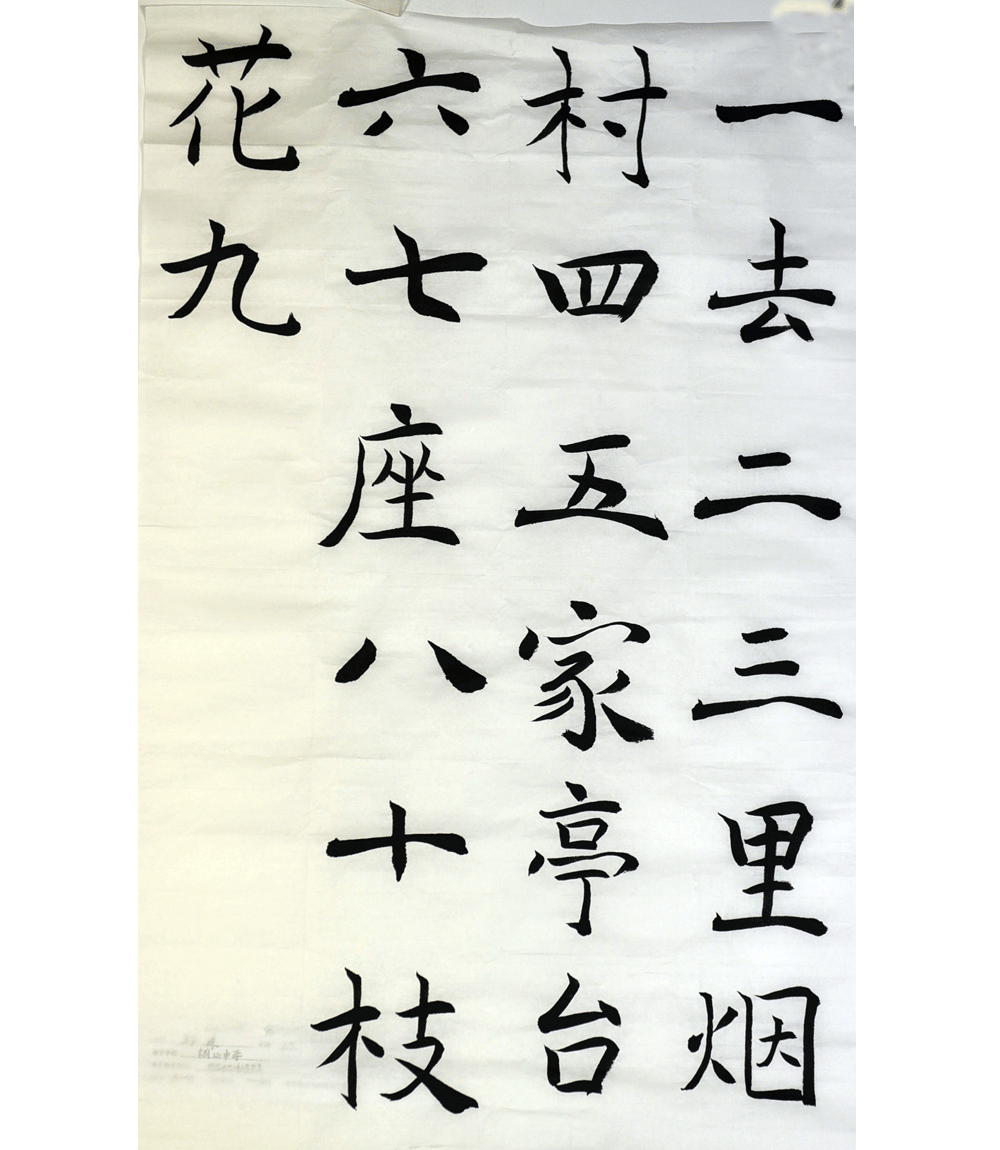 一去二三里烟
村四五家亭台
六七座八十枝
花九